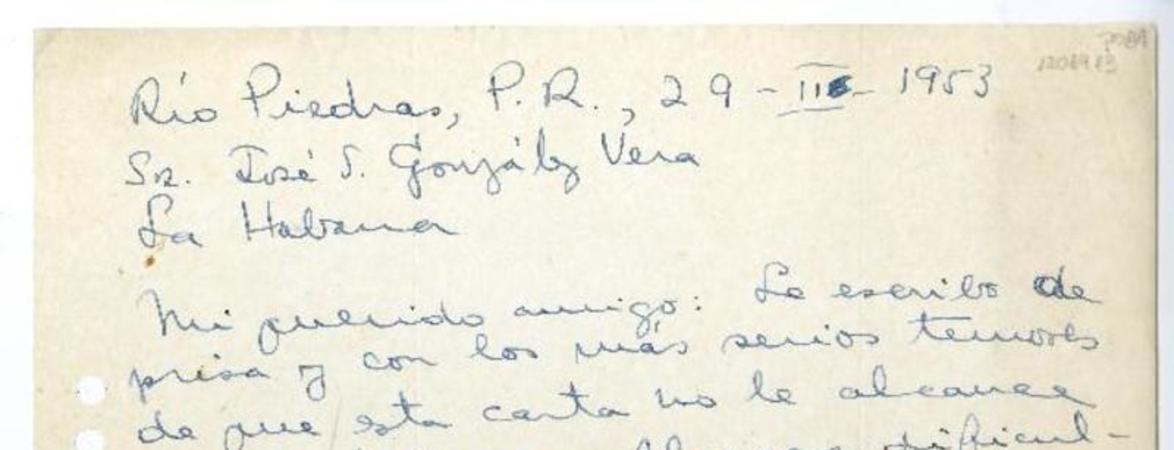 Río Piedras, P.R., 29-III-1953
Sr. José S. González Vera
La Habana
Mi querido amigo: Le escribo de
prisa y con los más serios temores
de que esta carta no le alcance
dificul-